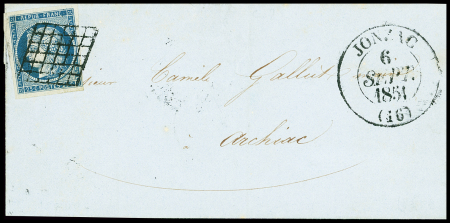 REPUB. FRANC.
JONZAC
6
SEPT.
1851
(16)
Monsieur Camile Gallut
Archiac